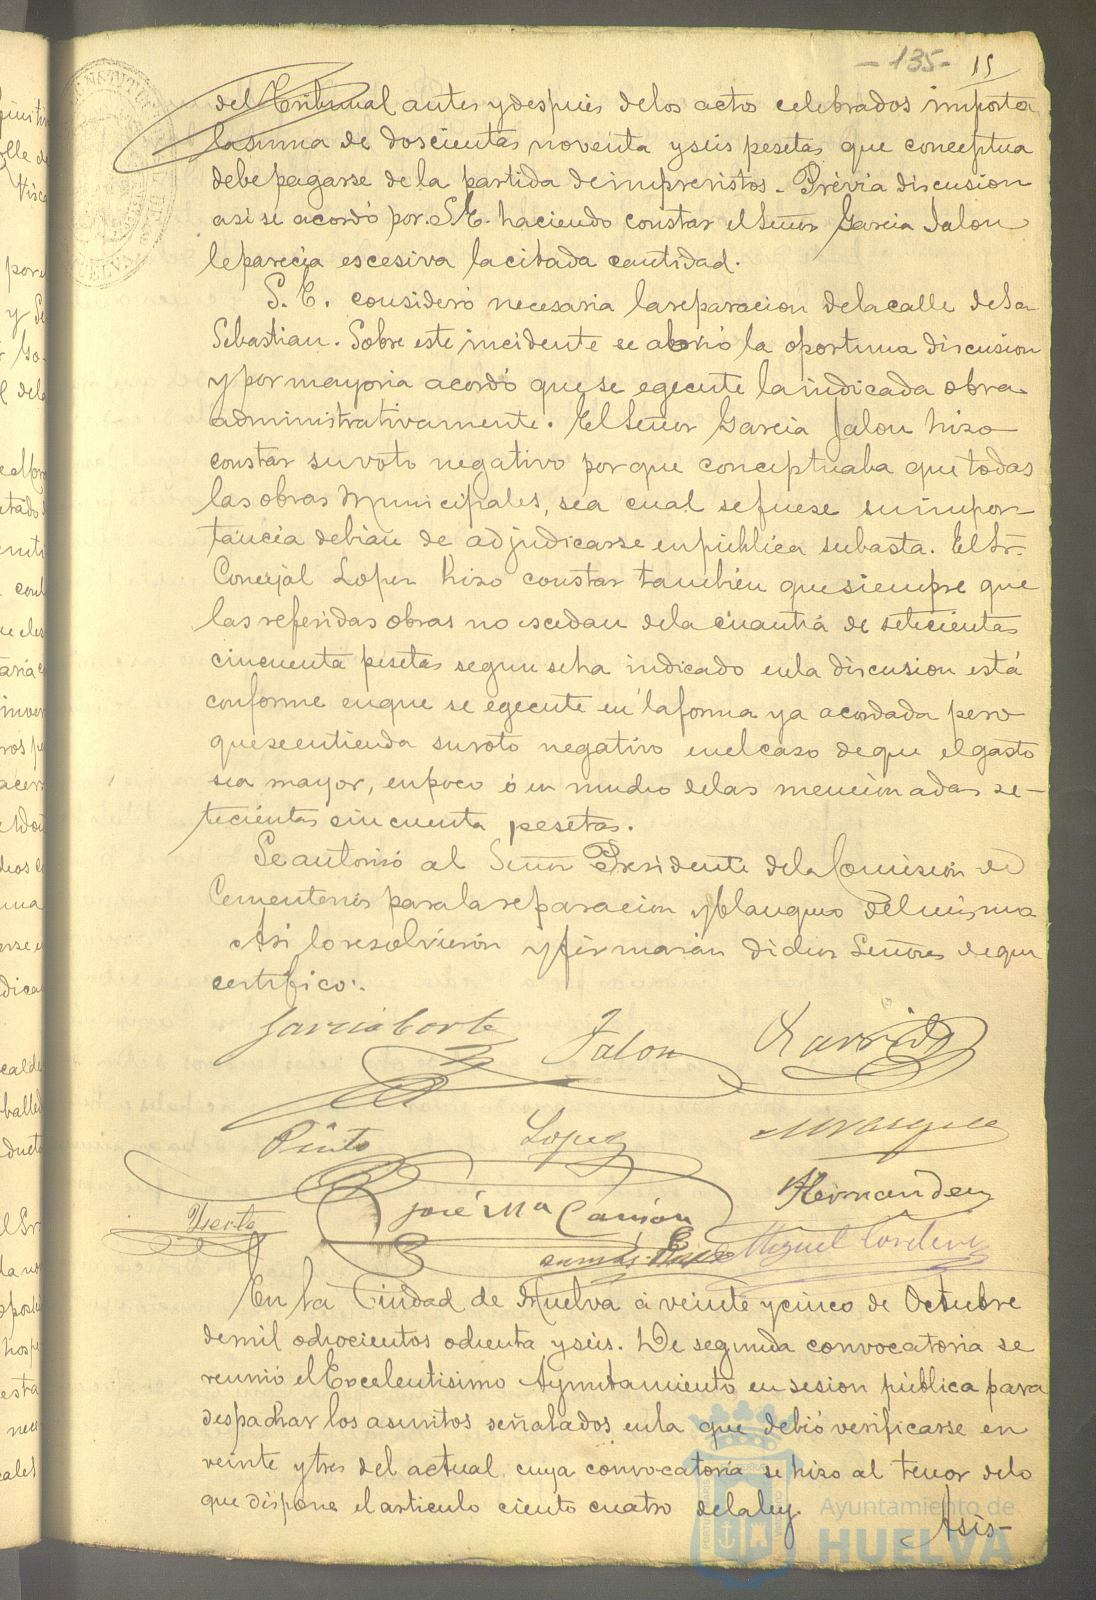 -135- 15
del Tribunal antes y despues de los actos celebrados importa
la suma de doscientas noventa y seis pesetas que conceptua
debe pagarse de la partida de imprevistos. Prévia discusion
asi se acordó por S.E. haciendo constar el Señor Garcia Jalon
le parecia escesiva la citada cantidad.
S. E. consideró necesaria la reparacion de la calle de Sn
Sebastian. Sobre este incidente se abrió la oportuna discusion
y por mayoria acordó que se egecute la indicada obra
administrativamente. El Señor Garcia Jalon hizo
constar su voto negativo porque conceptuaba que todas
las obras Municipales, sea cual se fuese su impor
tancia debian de adjudicarse en pública subasta. El Sr.
Concejal Lopez hizo constar tambien que siempre que
las referidas obras no escedan de la cuantia de setecientas
cincuenta pesetas segun se ha indicado en la discusion está
conforme en que se egecute en la forma ya acordada pero
que se entienda su voto negativo en el caso de que el gasto
sea mayor, en poco ó en mucho de las mencionadas se-
tecientas cincuenta pesetas.
Se autorizó al Señor Presidente de la Comision de
Cementerios para la reparacion y blanqueo del mismo
Asi lo resolvieron y firmarán dichos Señores de que
certifico:.
Garcia Corte Jalon Garrido
Pinto Lopez M Vazquez
José Ma Carrion Hernandez
Miguel Cordero
En la Ciudad de Huelva á veinte y cinco de Octubre
de mil ochocientos ochenta y seis. De segunda convocatoria se
reunió el Excelentisimo Ayuntamiento en sesion pública para
despachar los asuntos señalados en la que debió verificarse en
veinte y tres del actual, cuya convocatoria se hizo al tenor de lo
que dispone el articulo ciento cuatro de la ley.
Asis-
Ayuntamiento de
HUELVA